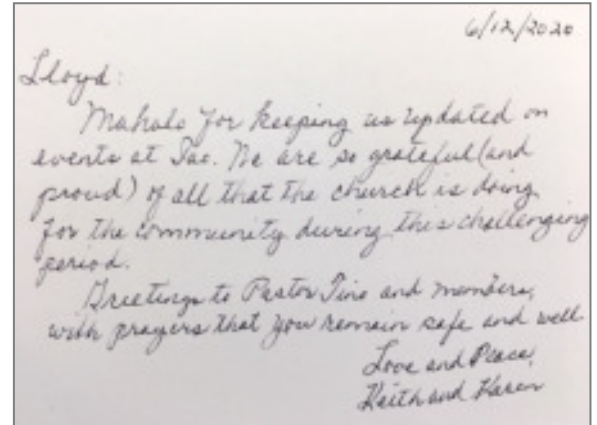 6/12/2020
Lloyd:
Mahalo for keeping us updated on
events at Iao. We are so grateful (and
proud) of all that the church is doing
for the community during this challenging
period.
Greetings to Pastor Tino and members,
with prayers that you remain safe and well.
Love and Peace,
Keith and Karen